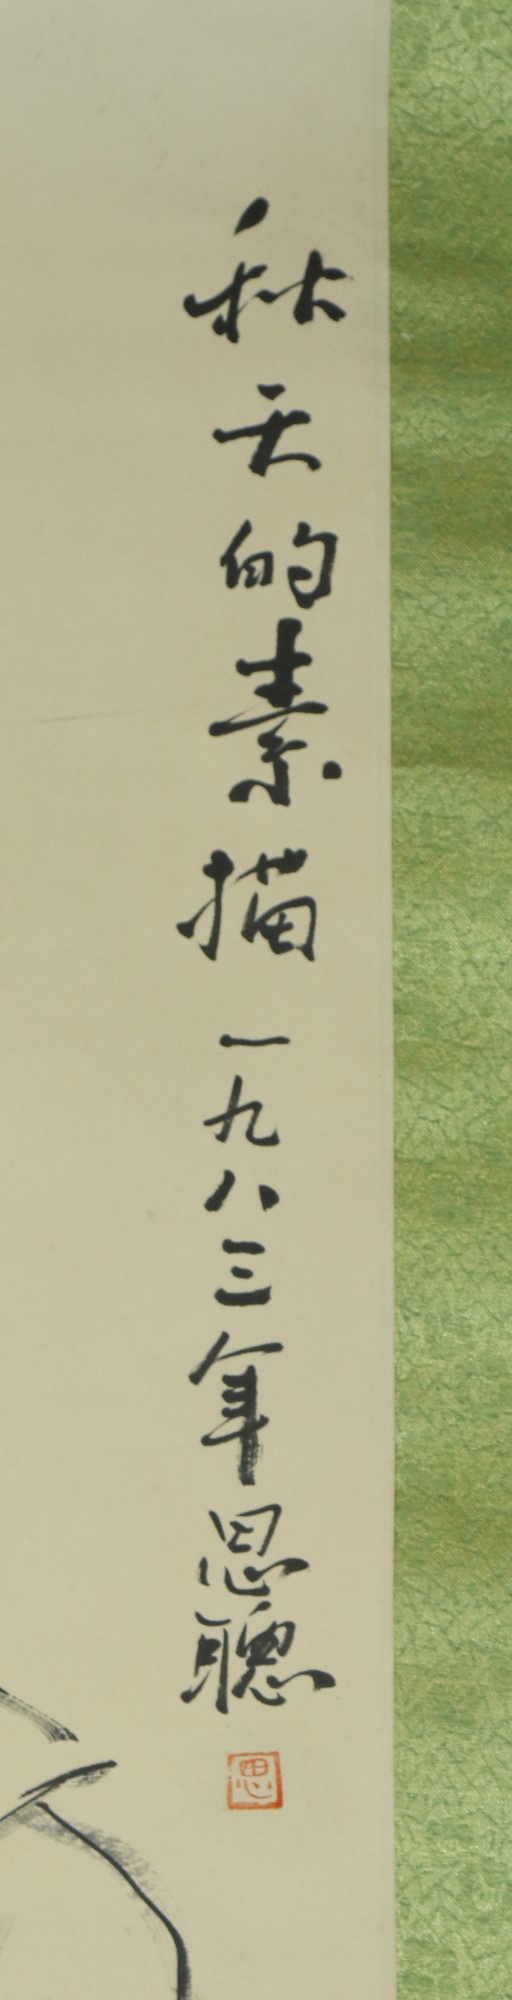 秋天的素描 一九八三年思聰
思